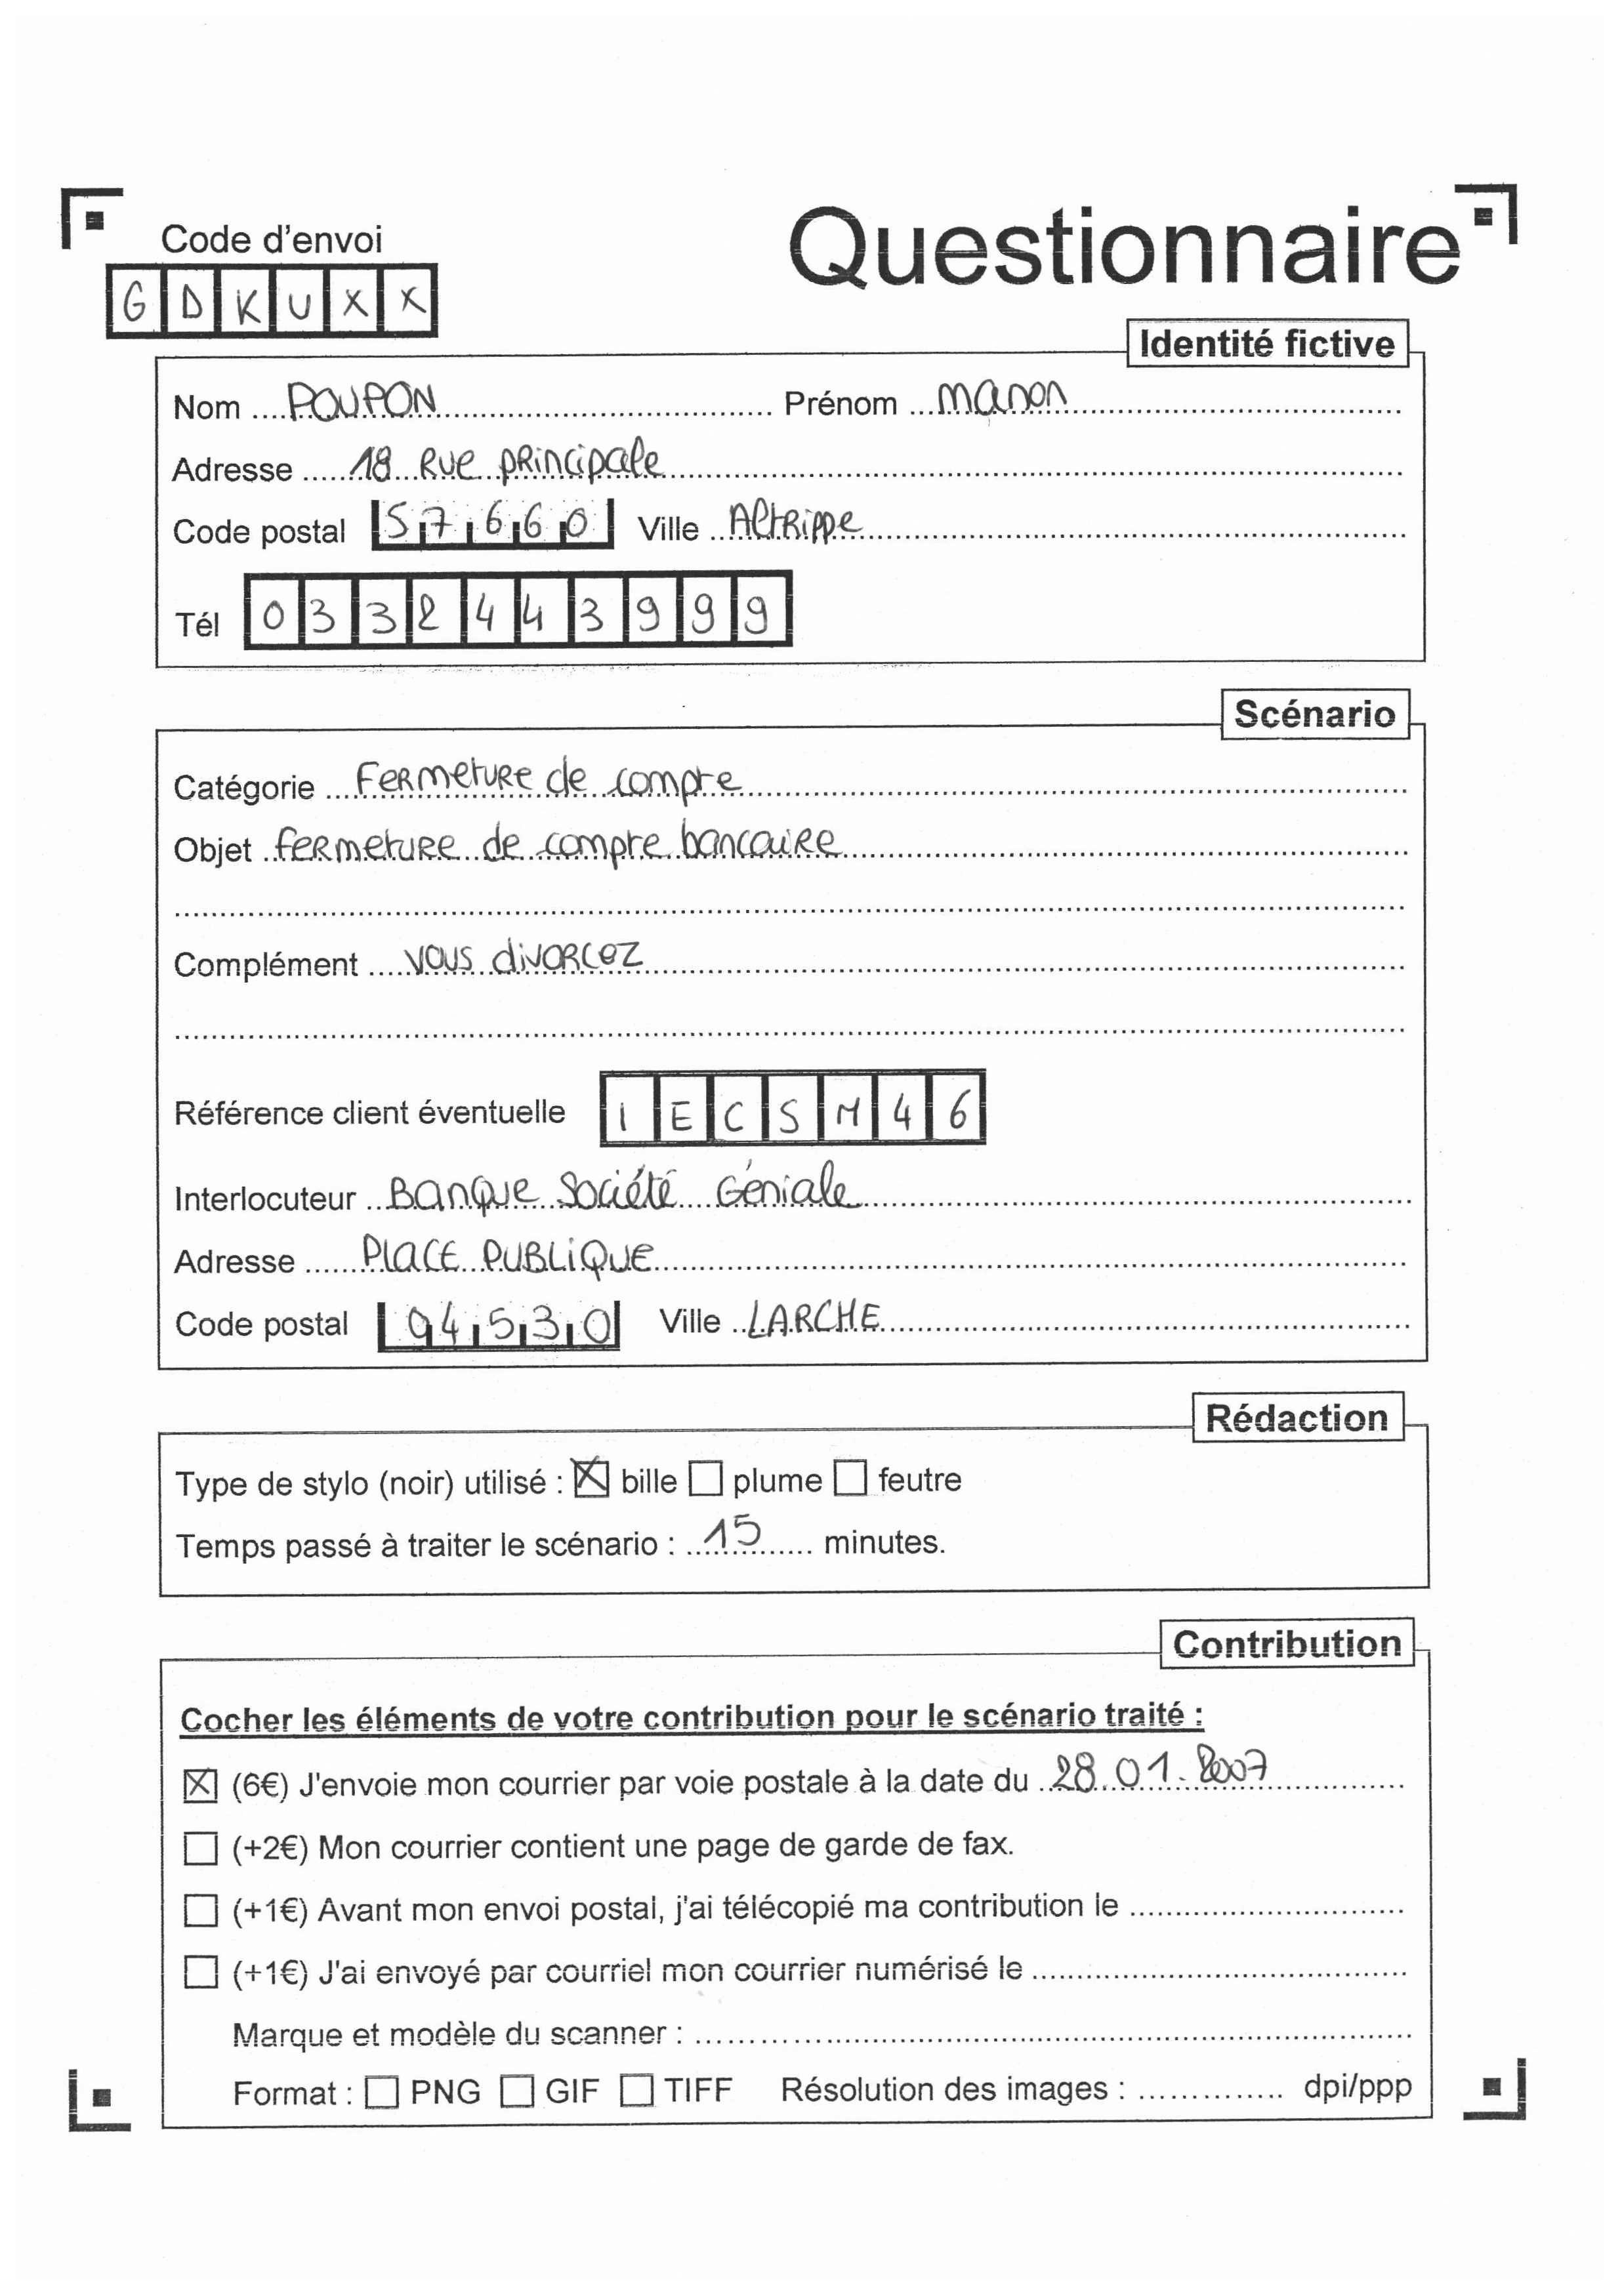 Code d'envoi
Questionnaire
GDKUXX
Identité fictive
Nom .... POUPON Prénom ... manon
Adresse ...... 18 Rue principale
Code postal 57660 Ville .. Altrippe
Tél 0332443999
Scénario
Catégorie .... Fermeture de compte
Objet .. fermeture de compte bancaire
Complément .... vous divorcez
Référence client éventuelle IECSM46
Interlocuteur .. Banque Société Géniale
Adresse ...... PLACE PUBLIQUE
Code postal 04530 Ville .. LARCHE
Rédaction
Type de stylo (noir) utilisé : ☒ bille ☐ plume ☐ feutre
Temps passé à traiter le scénario : .. 15 .... minutes.
Contribution
Cocher les éléments de votre contribution pour le scénario traité :
☒ (6€) J'envoie mon courrier par voie postale à la date du .. 28.01.2007
☐ (+2€) Mon courrier contient une page de garde de fax.
☐ (+1€) Avant mon envoi postal, j'ai télécopié ma contribution le ..............................
☐ (+1€) J'ai envoyé par courriel mon courrier numérisé le ........................................
Marque et modèle du scanner : ..............................................................................
Format : ☐ PNG ☐ GIF ☐ TIFF Résolution des images : .............. dpi/ppp